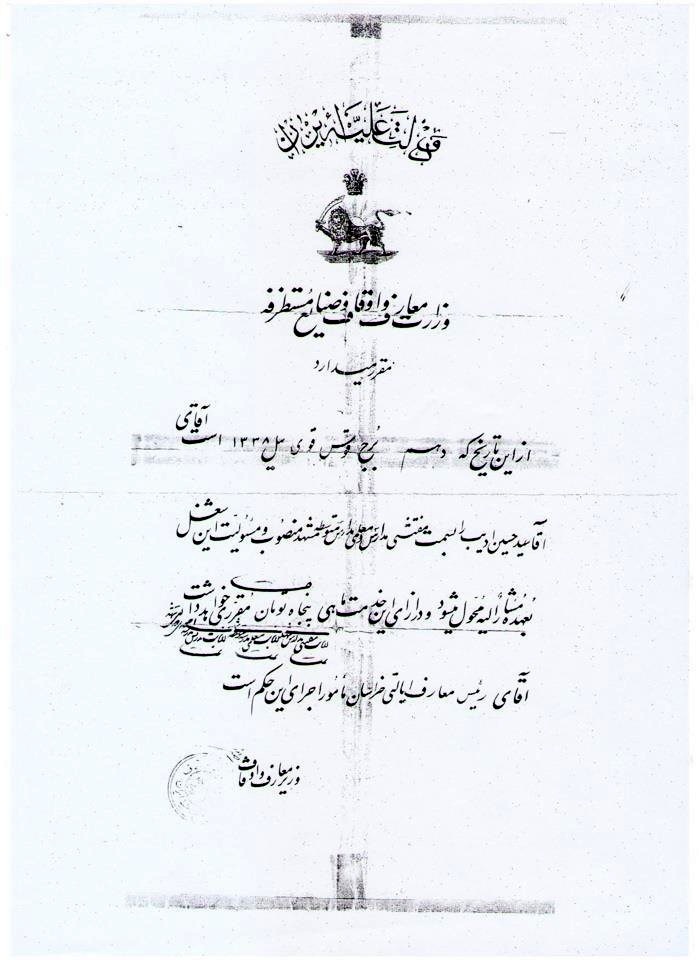 دولت علیّهٔ ایران
وزارت معارف و اوقاف و صنایع مستظرفه
مقرر میدارد
از این تاریخ که دهم برج قوس قوی ئیل ۱۳۳۸ است آقای
آقا سید حسین ادیب را بسمت مفتشی مدارس و معلمی مدارس متوسطه مشهد منصوب و مسئولیت این شغل
بعهده مشارالیه محول میشود و در ازای این خدمت ماهی پنجاه تومان مقرری خواهد داشت
آقای رئیس معارف ایالتی خراسان مأمور اجرای این حکم است
وزیر معارف و اوقاف